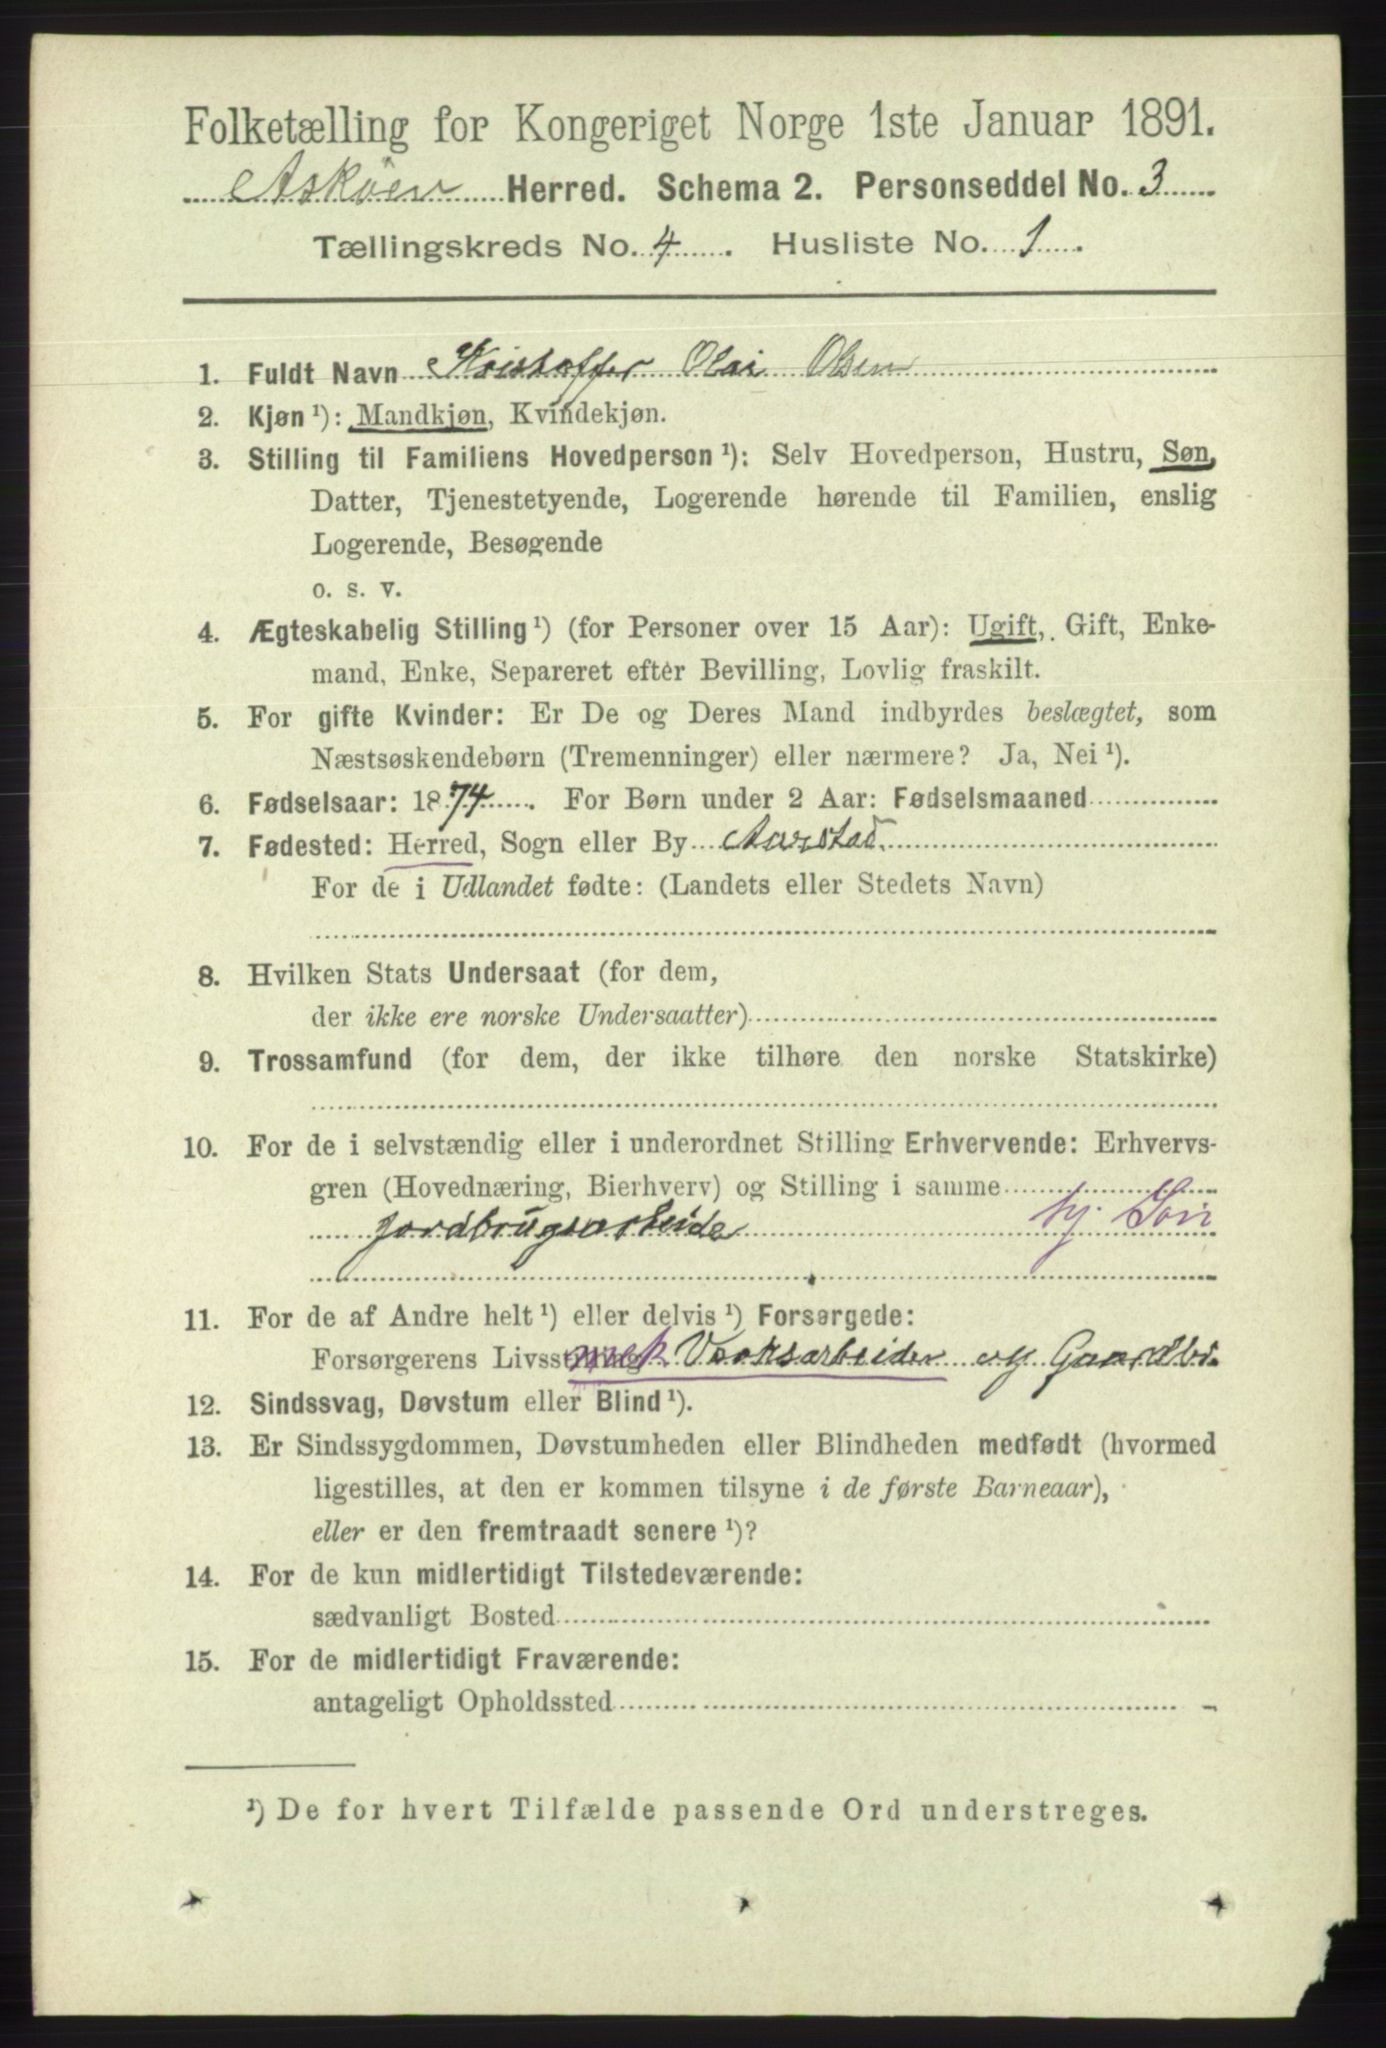 Folketælling for Kongeriget Norge 1ste Januar 1891.
Askøen Herred. Schema 2. Personseddel No. 3
Tællingskreds No. 4. Husliste No. 1.
1. Fuldt Navn Kristoffer Olai Olsen
2. Kjøn ¹): Mandkjøn, Kvindekjøn.
3. Stilling til Familiens Hovedperson ¹): Selv Hovedperson, Hustru, Søn,
Datter, Tjenestetyende, Logerende hørende til Familien, enslig
Logerende, Besøgende
o. s. v.
4. Ægteskabelig Stilling ¹) (for Personer over 15 Aar): Ugift, Gift, Enke-
mand, Enke, Separeret efter Bevilling, Lovlig fraskilt.
5. For gifte Kvinder: Er De og Deres Mand indbyrdes beslægtet, som
Næstsøskendebørn (Tremenninger) eller nærmere? Ja, Nei ¹).
6. Fødselsaar: 1874. For Børn under 2 Aar: Fødselsmaaned
7. Fødested: Herred, Sogn eller By Aarstad.
For de i Udlandet fødte: (Landets eller Stedets Navn)
8. Hvilken Stats Undersaat (for dem,
der ikke ere norske Undersaatter)
9. Trossamfund (for dem, der ikke tilhøre den norske Statskirke)
10. For de i selvstændig eller i underordnet Stilling Erhvervende: Erhvervs-
gren (Hovednæring, Bierhverv) og Stilling i samme
Jordbrugsarbeide
11. For de af Andre helt ¹) eller delvis ¹) Forsørgede:
Forsørgerens Livsstilling mek Værksarbeider og Gaardbr.
12. Sindssvag, Døvstum eller Blind ¹).
13. Er Sindssygdommen, Døvstumheden eller Blindheden medfødt (hvormed
ligestilles, at den er kommen tilsyne i de første Barneaar),
eller er den fremtraadt senere ¹)?
14. For de kun midlertidigt Tilstedeværende:
sædvanligt Bosted
15. For de midlertidigt Fraværende:
antageligt Opholdssted
¹) De for hvert Tilfælde passende Ord understreges.